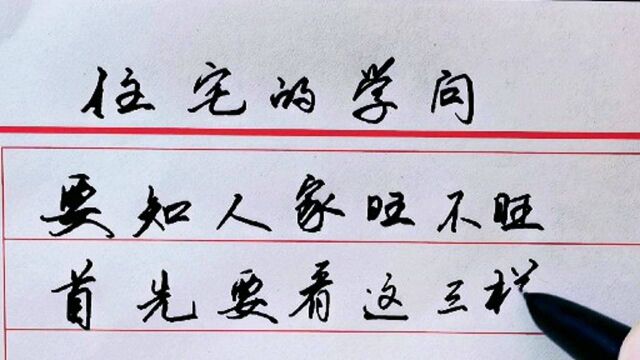 住宅的学问
要知人家旺不旺
首先要看这三样